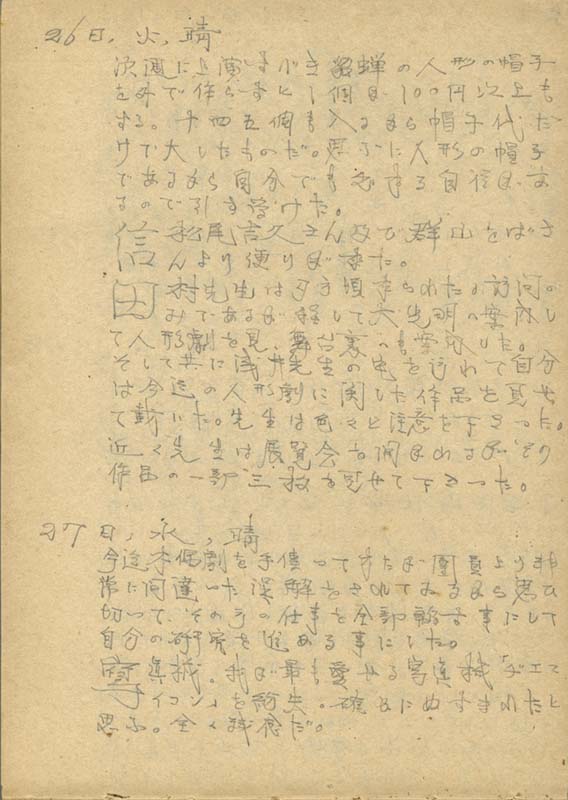 26日，火，晴
次週に上演すべき貂蝉の人形の帽子
を外で作らすと1個が100円以上も
する。十四五個も入るから帽子代だ
けで大したものだ。思ふに人形の帽子
であるから自分でも出来る自信があ
るので引き受けた。
信 松尾吉久さん及び群山をばさ
んより便りが来た。
田村先生は夕方頃来られた。訪問。
みであるが
て人形劇を見、舞台裏へも案内した。
そして共に浅井先生の宅を訪れて自分
は今迄の人形劇に関した作品を見せ
て戴いた。先生は色々と注意を下さった。
近く先生は展覧会を開かれる
作品の一部三枚を見せて下さった。
27日，水，晴
今迄木偶劇を手傳って来たが團員より非
常に間違いた誤解をされてゐるから思ひ
切って、その方の仕事を全部辭す事にして
自分の研究を進める事にした。
寫眞機。我が最も愛せる寫眞機「ヂエて
イコン」を紛失。確かにぬすまれたと
思ふ。全く残念だ。